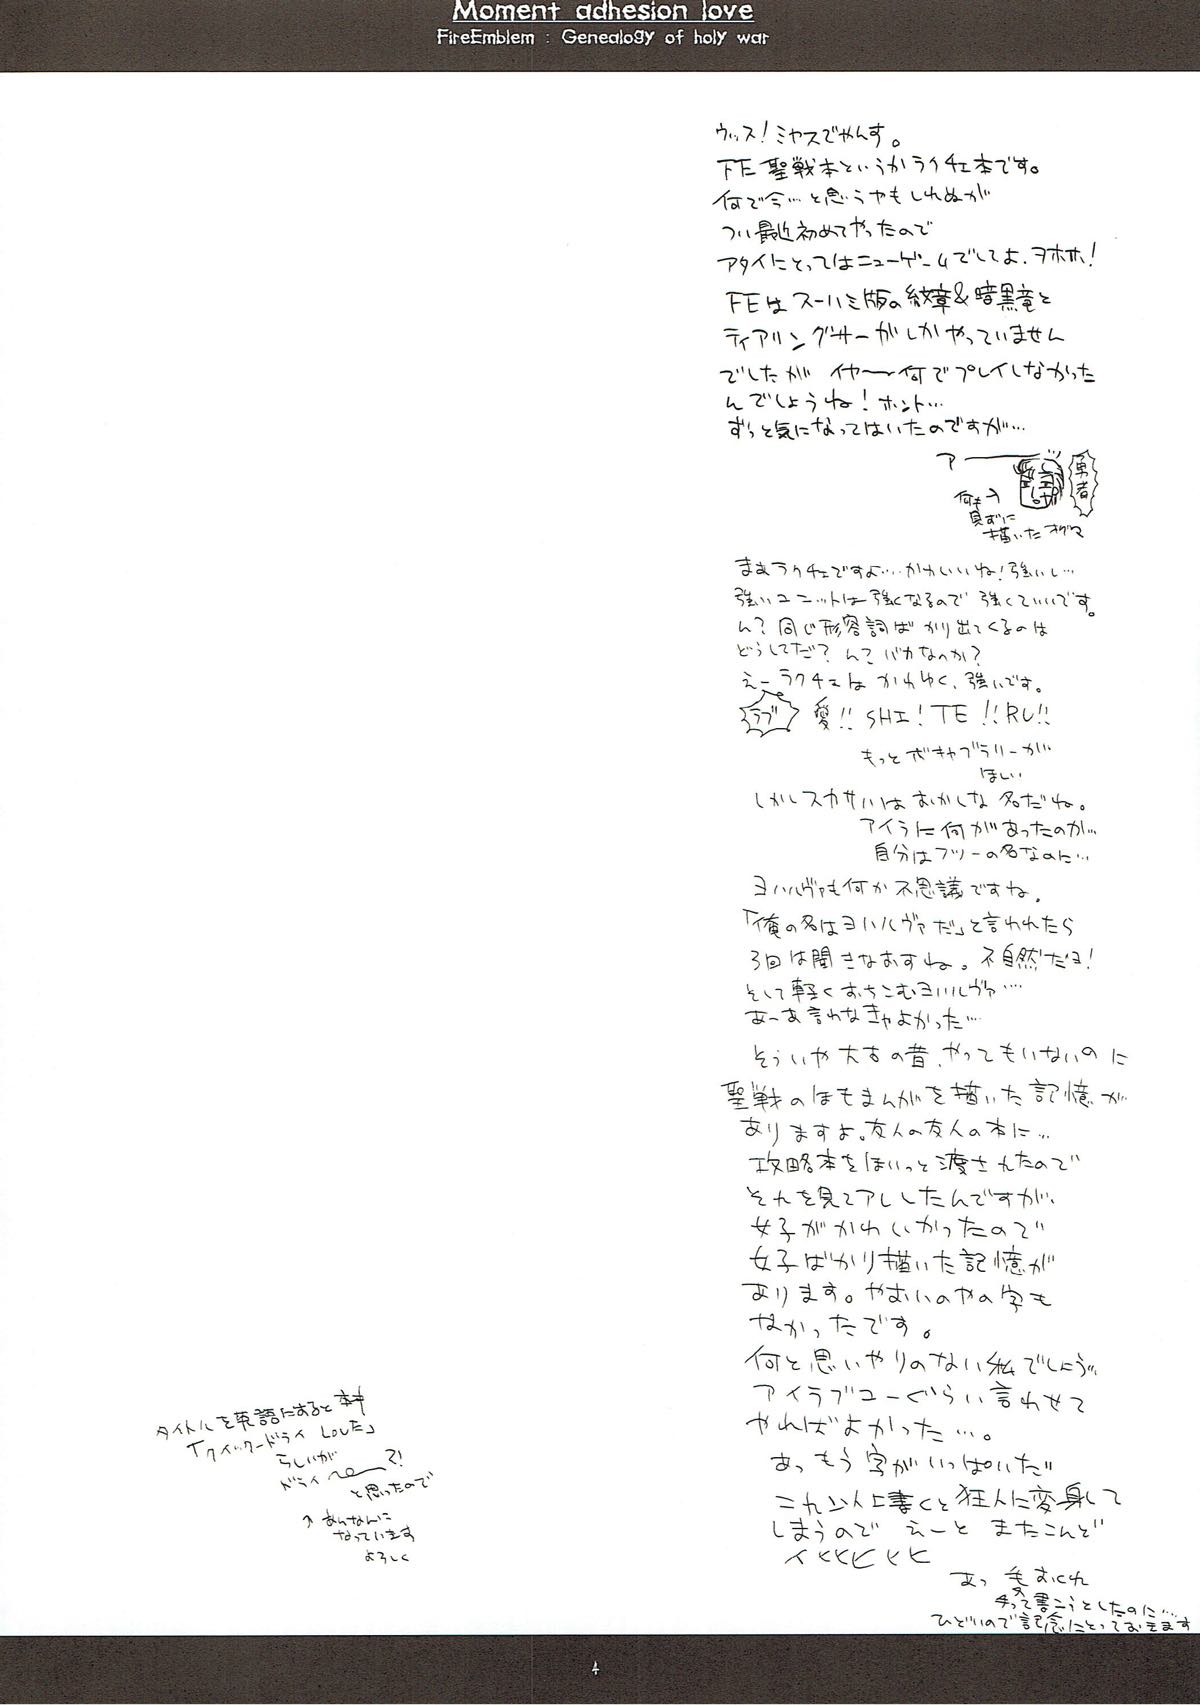 Moment adhesion love
FireEmblem : Genealogy of holy war
ウィッス!ミヤスでやんす。
FE聖戦本というかラクチェ本です。
何で今…と思うやもしれぬが
つい最近初めてやったので
アタイにとってはニューゲームでしてよ、ヲホホ!
FEはスーハミ版の紋章&暗黒竜と
ティアリングサーガしかやっていません
でしたが イヤ〜何でプレイしなかった
んでしょうね!ホント…
ずっと気になってはいたのですが…
アー
勇者
何も
見ずに
描いたオグマ
まあラクチェですよ…かわいいね!強いし…
強いユニットは強くなるので強くていいです。
ん?同じ形容詞ばかり出てくるのは
どうしてだ?ん?バカなのか?
えーラクチェはかわゆく、強いです。
ラブ 愛!! SHI!TE!!RU!!
もっとボキャブラリーが
ほしい
しかしスカサハはおかしな名だね。
アイラに何があったのか…
自分はフツーの名なのに…
ヨハルヴァも何か不思議ですね。
「俺の名はヨハルヴァだ」と言われたら
3回は聞きなおすね。不自然だヨ!
そして軽くおちこむヨハルヴァ…
あーあ言わなきゃよかった…
そういや大古の昔、やってもいないのに
聖戦のほもまんがを描いた記憶が
ありますよ。友人の友人の本に…
攻略本をほいっと渡されたので
それを見てアレしたんですが、
女子がかわいかったので
女子ばかり描いた記憶が
あります。やおいのやの字も
なかったです。
何と思いやりのない私でしょう…
アイラブユーぐらい言わせて
やればよかった…。
あっもう字がいっぱいだ
これ以上書くと狂人に変身して
しまうので えーと またこんど
イヒヒヒヒヒ
あっ
って書こうとしたのに…
ひどいので記念にとっておきます
タイトルを英語にすると
「クイックードライ Loveだ」
らしいが
ドライ〜?!
と思ったので
↑あんなんに
なっています
よろしく
4